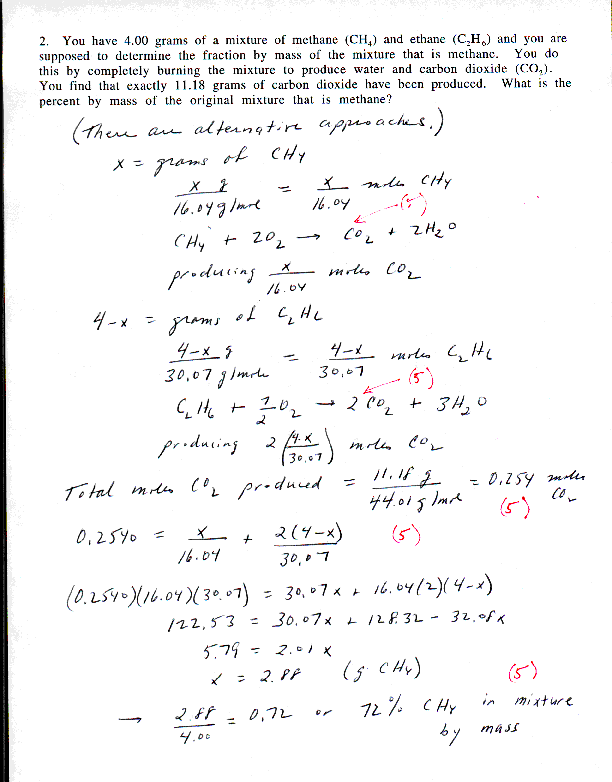 2. You have 4.00 grams of a mixture of methane (CH₄) and ethane (C₂H₆) and you are
supposed to determine the fraction by mass of the mixture that is methane. You do
this by completely burning the mixture to produce water and carbon dioxide (CO₂).
You find that exactly 11.18 grams of carbon dioxide have been produced. What is the
percent by mass of the original mixture that is methane?
(There are alternative approaches.)
x = grams of CH4
x g / 16.04 g/mole = x / 16.04 moles CH4
(5)
CH4 + 2O₂ → CO₂ + 2H₂O
producing x / 16.04 moles CO₂
4-x = grams of C₂H6
4-x g / 30.07 g/mole = 4-x / 30.07 moles C₂H6
(5)
C₂H6 + 7/2 O₂ → 2CO₂ + 3H₂O
producing 2 (4-x / 30.07) moles CO₂
Total moles CO₂ produced = 11.18 g / 44.01 g/mole = 0.254 moles CO₂
(5)
0.2540 = x / 16.04 + 2(4-x) / 30.07 (5)
(0.2540)(16.04)(30.07) = 30.07x + 16.04(2)(4-x)
122.53 = 30.07x + 128.32 - 32.08x
5.79 = 2.01 x
x = 2.88 (g CH4) (5)
→ 2.88 / 4.00 = 0.72 or 72% CH4 in mixture
by mass